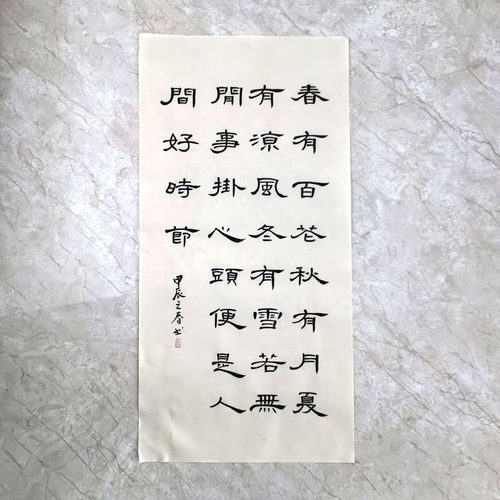 春有百花秋有月夏
有涼風冬有雪若無
閒事掛心頭便是人
間好時節
甲辰之春书